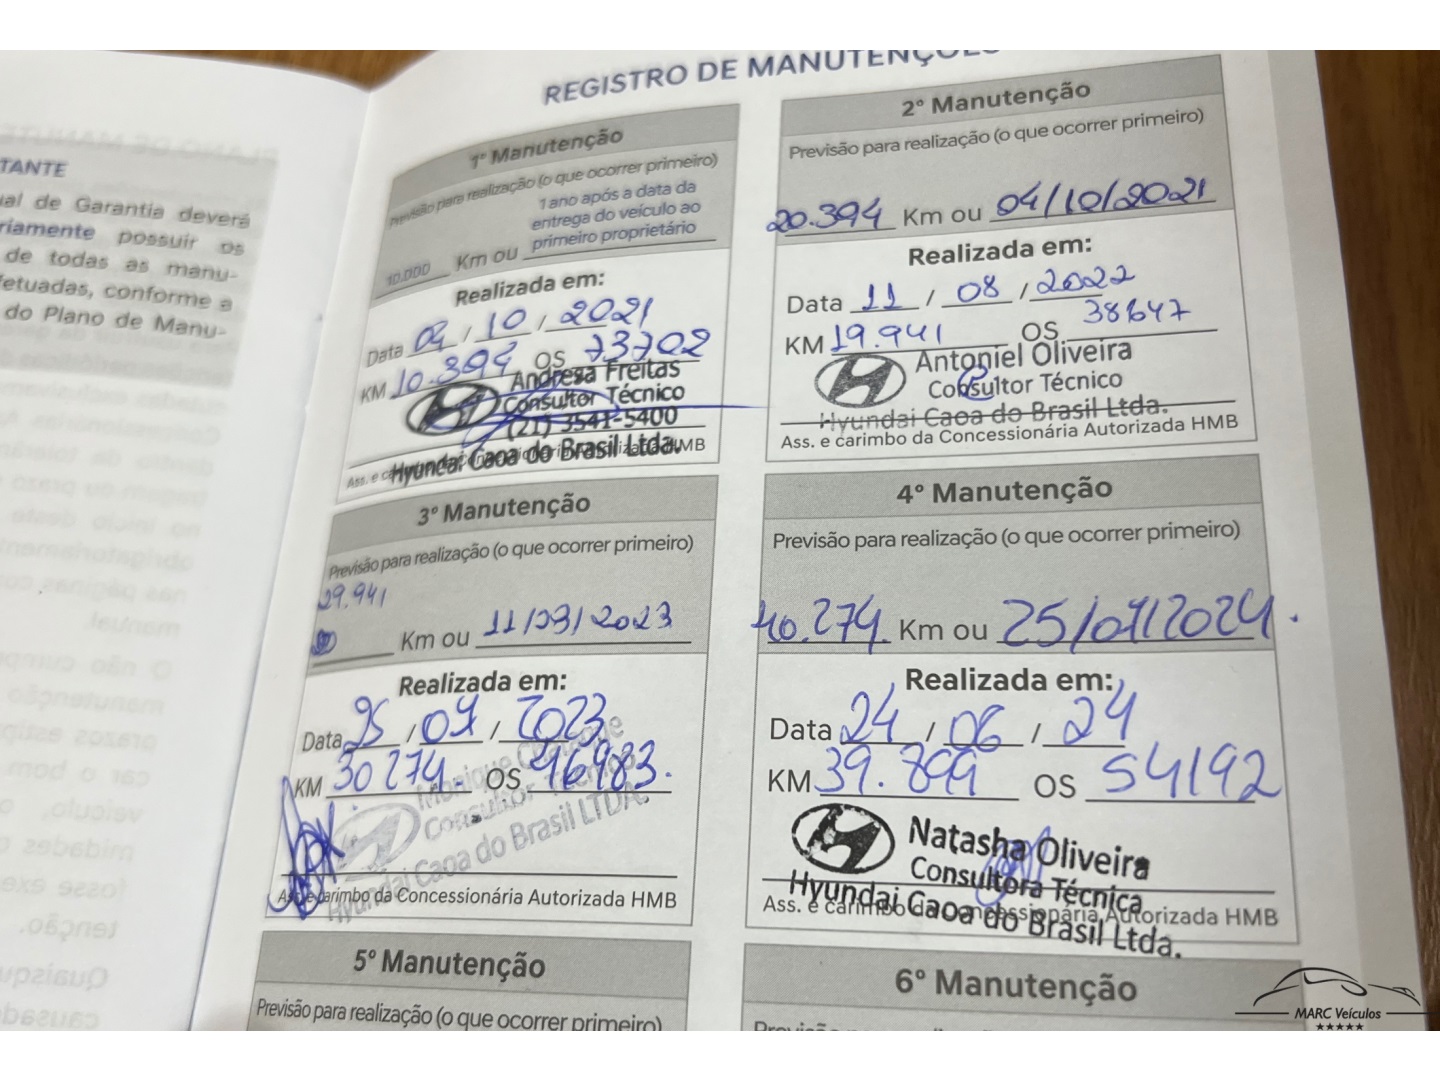 REGISTRO DE MANUTENÇÕES
TANTE
ual de Garantia deverá
riamente possuir os
de todas as manu-
fetuadas, conforme a
do Plano de Manu-
1º Manutenção
Previsão para realização (o que ocorrer primeiro)
1 ano após a data da
entrega do veículo ao
10.000 Km ou primeiro proprietário
Realizada em:
Data 04 / 10 / 2021
KM 10.394 OS 73702
Andresa Freitas
Consultor Técnico
(21) 3541-5400
Hyundai Caoa do Brasil Ltda.
2º Manutenção
Previsão para realização (o que ocorrer primeiro)
20.394 Km ou 04/10/2021
Realizada em:
Data 11 / 08 / 2022
KM 19.941 OS 38647
Antoniel Oliveira
Consultor Técnico
Hyundai Caoa do Brasil Ltda.
Ass. e carimbo da Concessionária Autorizada HMB
3º Manutenção
Previsão para realização (o que ocorrer primeiro)
29.941
Km ou 11/03/2023
Realizada em:
Data 25 / 07 / 2023
KM 30274 OS 46983.
Monique
Consultor Técnico
Hyundai Caoa do Brasil LTDA.
Ass. e carimbo da Concessionária Autorizada HMB
4º Manutenção
Previsão para realização (o que ocorrer primeiro)
40.274 Km ou 25/07/2024.
Realizada em:
Data 24 / 06 / 24
KM 39.899 OS 54192
Natasha Oliveira
Consultora Técnica
Hyundai Caoa do Brasil Ltda.
Ass. e carimbo da Concessionária Autorizada HMB
5º Manutenção
Previsão para realização (o que ocorrer primeiro)
6º Manutenção
MARC Veículos